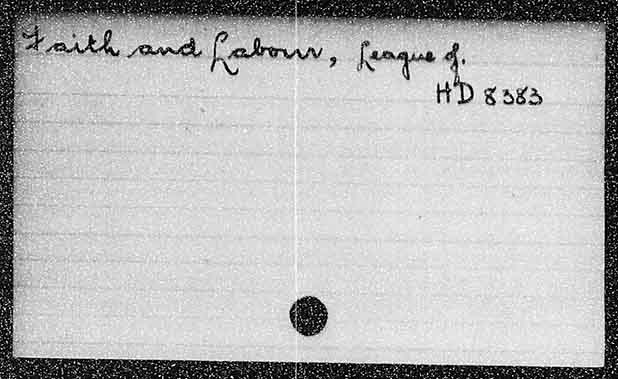 Faith and Labour, League of.
HD 8383